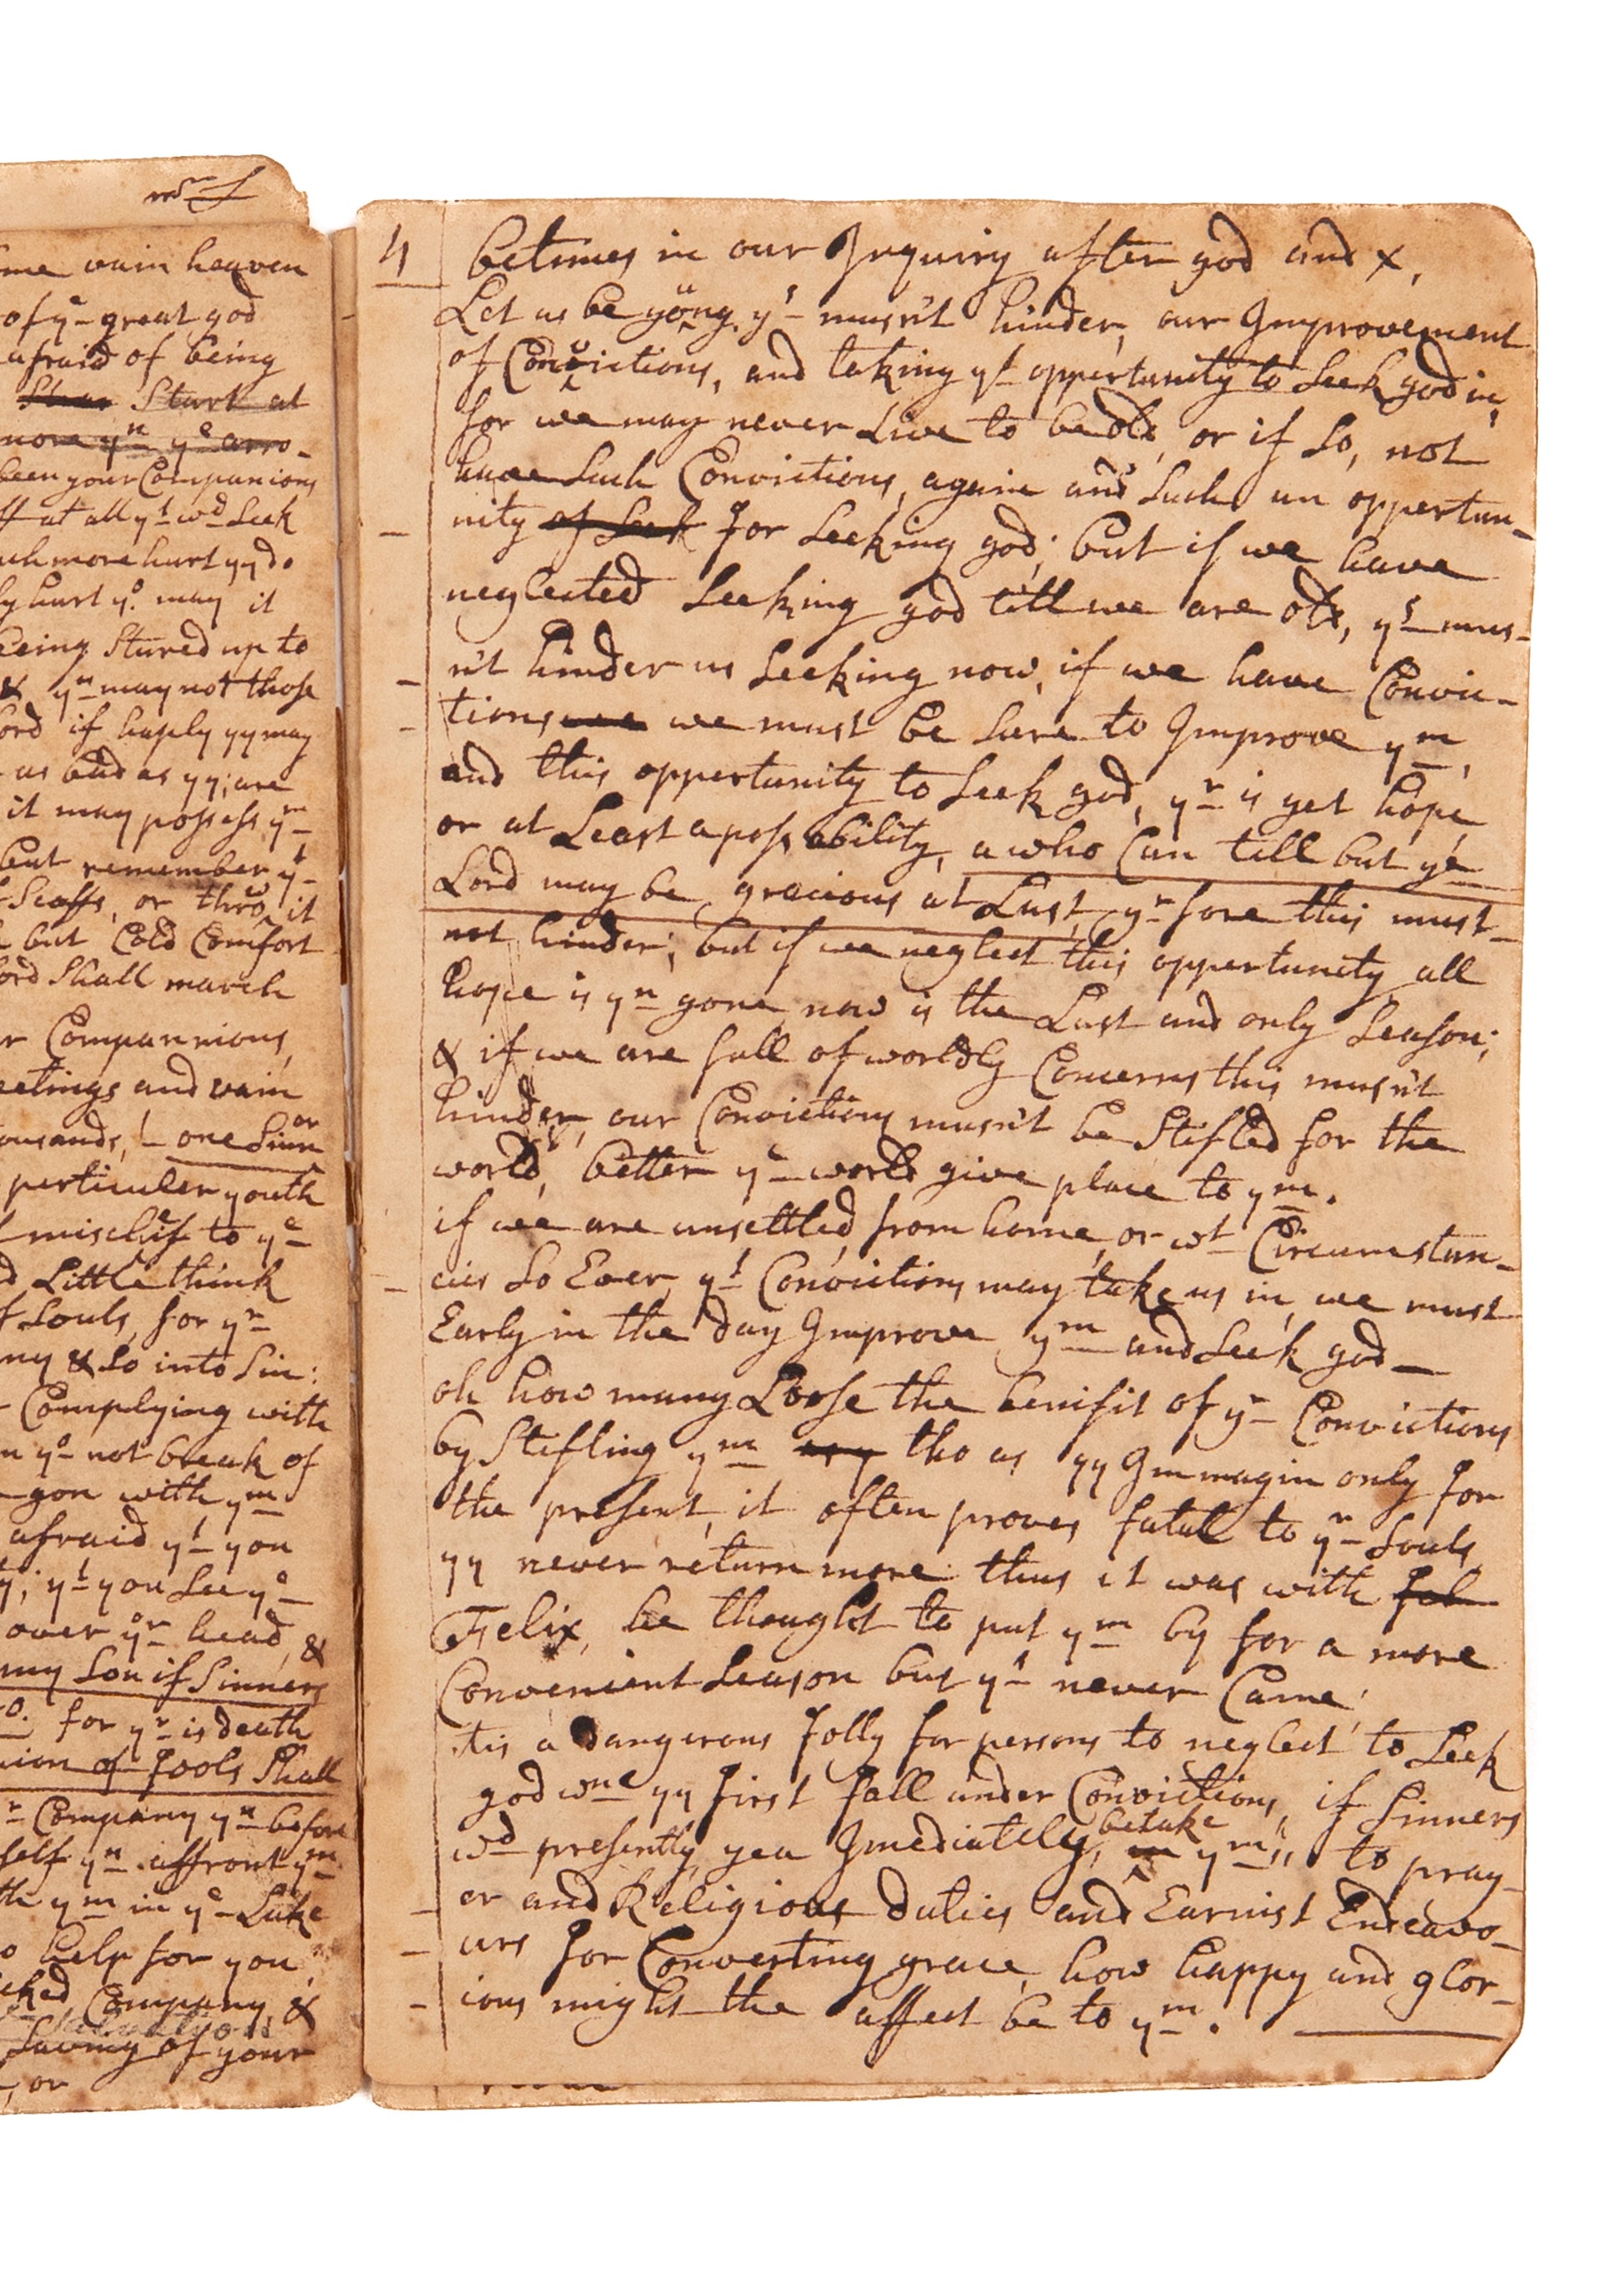 me vain heaven
of yᵉ great god
afraid of being
Start at
more yⁿ yᵉ arro-
been your Companions
ff at all yᵗ wᵈ Seek
uch more hurt yy do
ly hurt yᵒ may it
being Stured up to
& yⁿ may not those
ord if haply yy may
as bad as yy; are
it may possess yᵐ
but remember yᵗ
Scoffs, or throw it
but Cold Comfort
ord Shall march
r Companions,
eetings and vain
ousands, one Sinnor
perticuler youth
mischif to yᵉ
d Little think
f Souls, for yʳ
ny & So into Sin:
Complying with
n yᵒ not break of
gon with yᵐ
afraid yᵗ you
yᵗ you See yᵉ
over yʳ head, &
my Son if Sinners
for yʳ is death
nion of fools Shall
Company yⁿ before
self yⁿ affront yᵐ
th yᵐ in yᵉ Lake
o help for you
cked Company, &
Saving of your
, or
4
betimes in our Inquiry after god and x,
Let us be yoüng yˢ musn't hinder, our Improvement
of Convictions, and taking yᵗ oppertunity to Seek god in,
for we may never Live to be old, or if So, not
have Such Convictions, again and Such an oppertun-
nity of Seek for Seeking god; but if we have
neglected Seeking god till we are old, yˢ mus-
n't hinder us Seeking now, if we have Convic-
tions we we must be Sure to Improve yᵐ,
and this oppertunity to Seek god, yʳ is yet hope,
or at Least a possability, a who Can tell but yᵉ
Lord may be gracious at Last, yʳfore this must
not hinder; but if we neglect this oppertunity all
hope is yⁿ gone now is the Last and only Season;
& if we are full of worldly Concerns this musn't
hinder, our Convictions musn't be Stifled for the
world, better yᵉ world give place to yᵐ.
if we are unsettled, from home, or wᵗ Circumstan-
cies So Ever, yᵗ Convictions may take us in, we must
Early in the day Improve yᵐ and Seek god
oh how many Loose the benifit of yʳ Convictions
by Stifling yᵐ tho as yy Immagin only for
the present, it often proves fatal to yʳ Souls
yy never return more: thus it was with fel
Felix, he thought to put yᵐ by for a more
Convenient Season but yᵗ never Came,
tis a dangerous folly for persons to neglect to Seek
god wⁿᵉ yy first fall under Convictions, if Sinners
wᵈ presently, yea Imediately, betake yᵐˢ, to pray-
er and Religious duties and Earnist Endeavo-
urs for Converting grace, how happy and glor-
ious might the affect be to yᵐ.